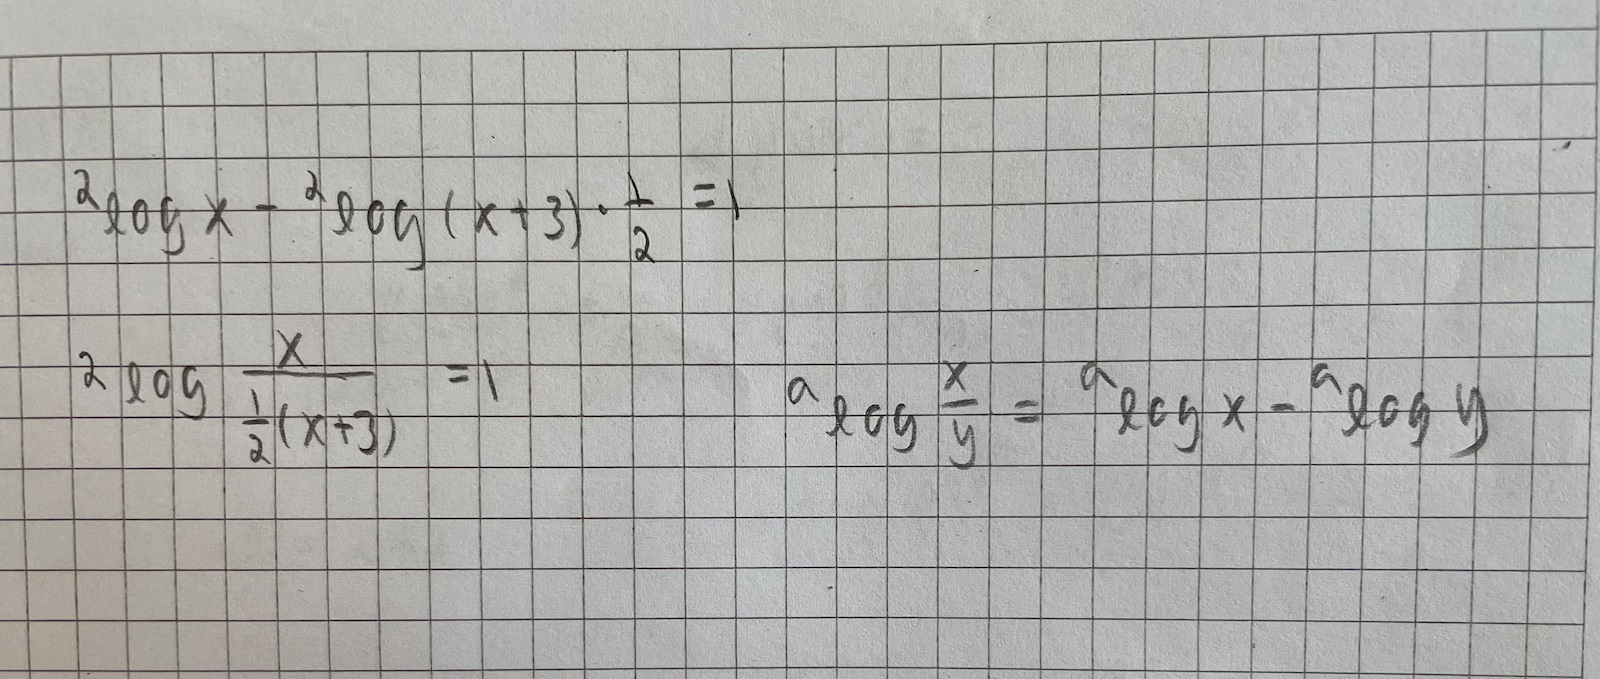 ²log x - ²log (x+3) · 1/2 = 1
²log x / (1/2 (x+3)) = 1
ᵃlog x/y = ᵃlog x - ᵃlog y